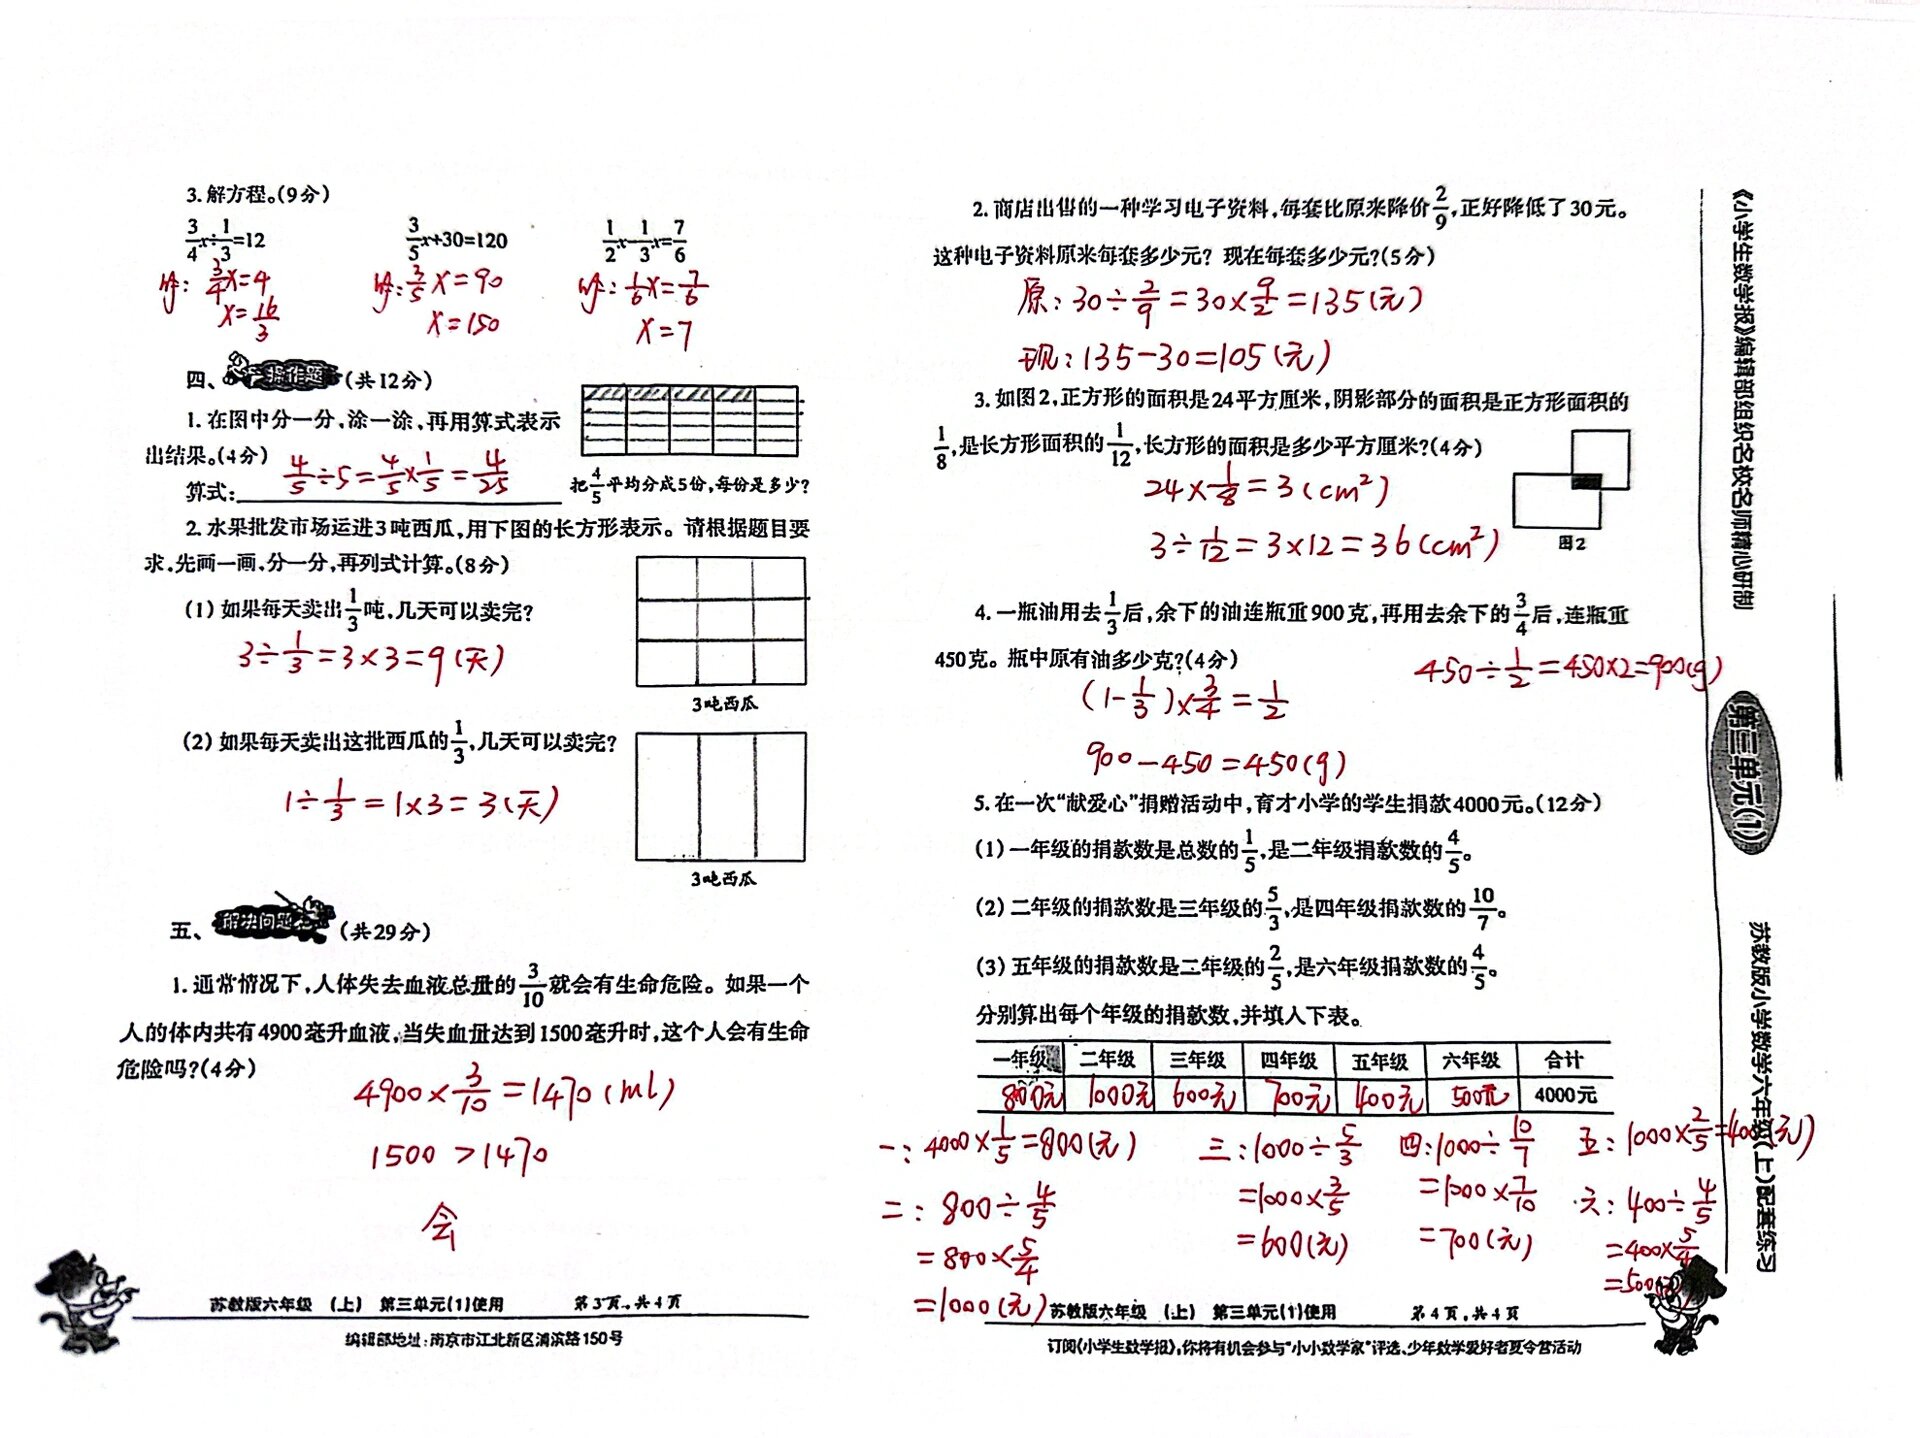 3.解方程。(9分)
3/4x÷1/3=12 3/5x+30=120 1/2x-1/3x=7/6
解: 3/4x=4 解: 3/5x=90 解: 1/6x=7/6
x=16/3 x=150 x=7
四、操作题(共12分)
1.在图中分一分,涂一涂,再用算式表示
出结果。(4分)
算式: 4/5÷5=4/5×1/5=4/25
把4/5平均分成5份,每份是多少?
2.水果批发市场运进3吨西瓜,用下图的长方形表示。请根据题目要
求,先画一画,分一分,再列式计算。(8分)
(1)如果每天卖出1/3吨,几天可以卖完?
3÷1/3=3×3=9(天)
3吨西瓜
(2)如果每天卖出这批西瓜的1/3,几天可以卖完?
1÷1/3=1×3=3(天)
3吨西瓜
五、解决问题(共29分)
1.通常情况下,人体失去血液总量的3/10就会有生命危险。如果一个
人的体内共有4900毫升血液,当失血量达到1500毫升时,这个人会有生命
危险吗?(4分)
4900×3/10=1470(ml)
1500>1470
会
苏教版六年级 (上) 第三单元(1)使用 第3页,共4页
编辑部地址:南京市江北新区浦滨路150号
2.商店出售的一种学习电子资料,每套比原来降价2/9,正好降低了30元。
这种电子资料原来每套多少元? 现在每套多少元?(5分)
原: 30÷2/9=30×9/2=135(元)
现: 135-30=105(元)
3.如图2,正方形的面积是24平方厘米,阴影部分的面积是正方形面积的
1/8,是长方形面积的1/12,长方形的面积是多少平方厘米?(4分)
24×1/8=3(cm²)
3÷1/12=3×12=36(cm²)
图2
4.一瓶油用去1/3后,余下的油连瓶重900克,再用去余下的3/4后,连瓶重
450克。瓶中原有油多少克?(4分)
(1-1/3)×3/4=1/2
450÷1/2=450×2=900(g)
900-450=450(g)
5.在一次“献爱心”捐赠活动中,育才小学的学生捐款4000元。(12分)
(1)一年级的捐款数是总数的1/5,是二年级捐款数的4/5。
(2)二年级的捐款数是三年级的5/3,是四年级捐款数的10/7。
(3)五年级的捐款数是二年级的2/5,是六年级捐款数的4/5。
分别算出每个年级的捐款数,并填入下表。
一年级 二年级 三年级 四年级 五年级 六年级 合计
800元 1000元 600元 700元 400元 500元 4000元
一: 4000×1/5=800(元)
二: 800÷4/5
=800×5/4
=1000(元)
三: 1000÷5/3
=1000×3/5
=600(元)
四: 1000÷10/7
=1000×7/10
=700(元)
五: 1000×2/5=400(元)
六: 400÷4/5
=400×5/4
=500
苏教版六年级 (上) 第三单元(1)使用 第4页,共4页
订阅《小学生数学报》,你将有机会参与“小小数学家”评选、少年数学爱好者夏令营活动
《小学生数学报》编辑部组织名校名师精心研制
第三单元(1)
苏教版小学数学六年级(上)配套练习